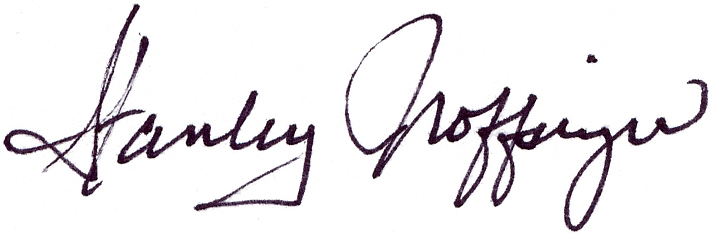 Stanley Noffsinger